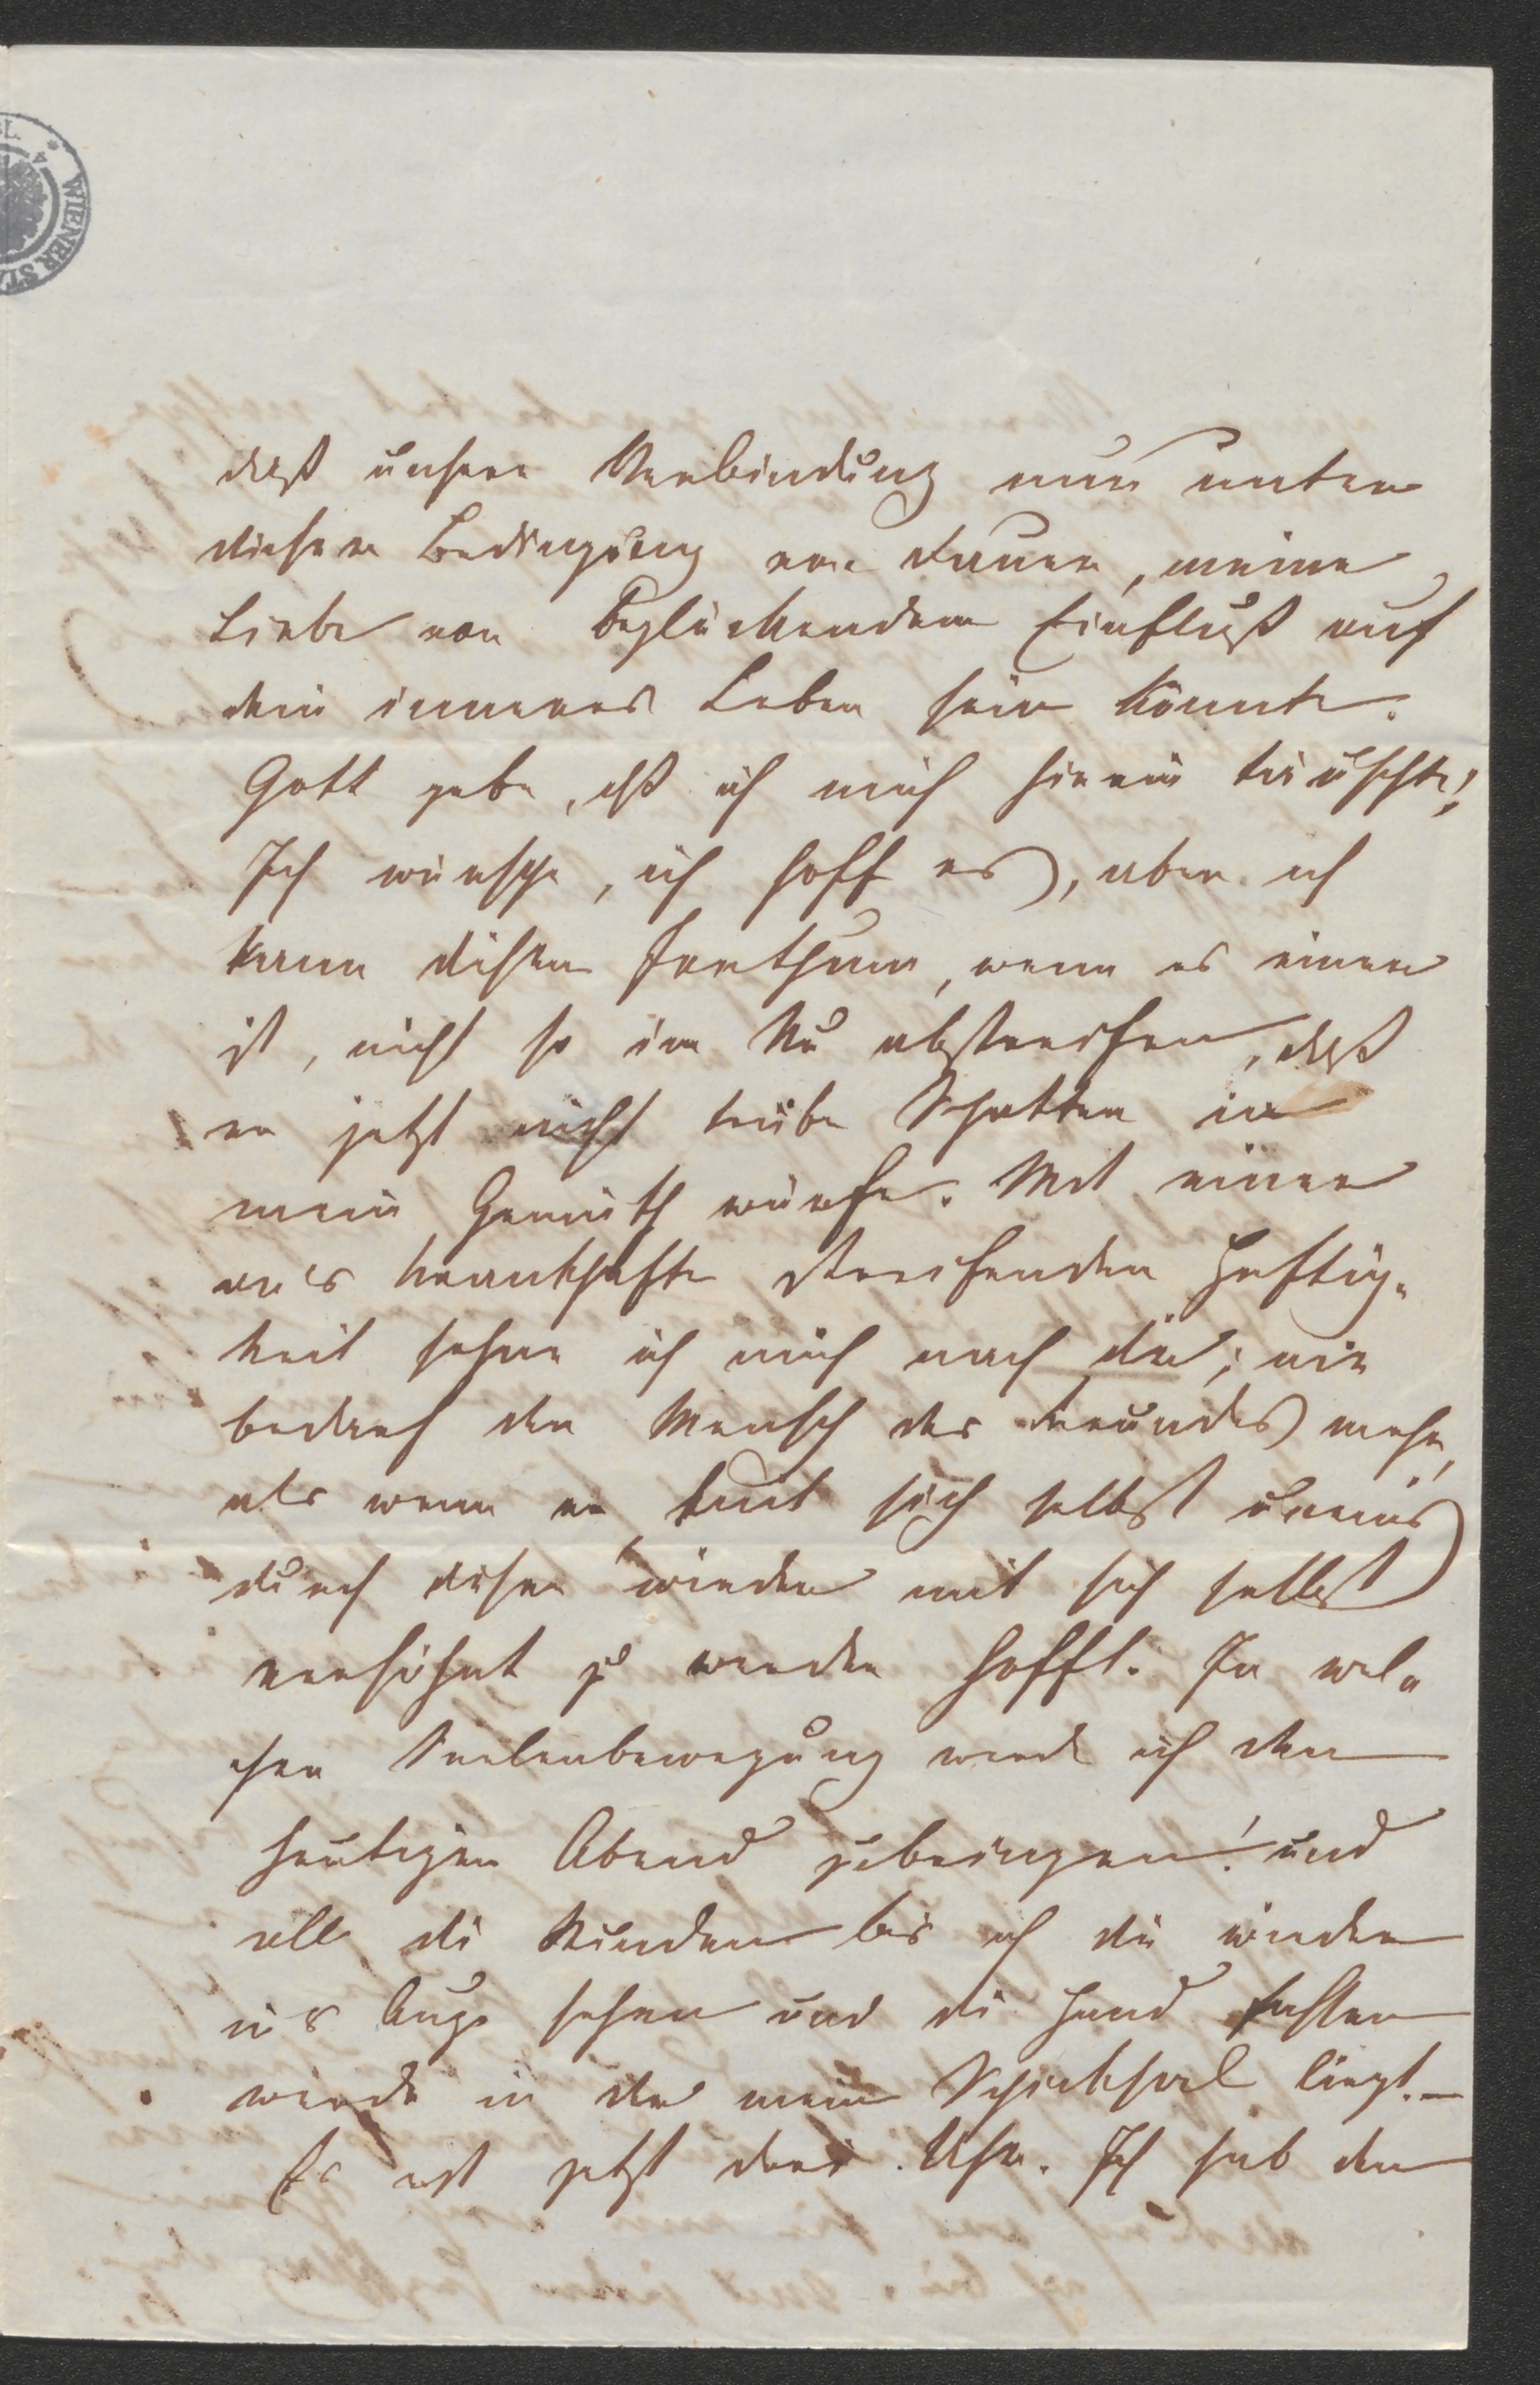 WIENER ST
daß unsere Verbindung nur unter
dieser Bedingung von Dauer, meine
Liebe von beglückendem Einfluß auf
dein inneres Leben sein könnte.
Gott gebe, dß ich mich hierin täuschte!
Ich wünsche, ich hoff es, aber ich
kann diesen Irrthum, wenn es einer
ist, nicht so im Nu abstreifen, daß
er jetzt nicht trübe Schatten in
mein Gemüth würfe. Mit einer
an's krankhafte streifenden Heftig-
keit sehne ich mich nach dir; nie
bedarf der Mensch des Freundes mehr,
als wenn er, mit sich selbst uneins
durch diesen wieder mit sich selbst
versöhnt zu werden hofft. In wel-
cher Seelenbewegung werd ich den
heutigen Abend zubringen! und
all die Stunden bis ich dir wieder
in's Auge sehen und die Hand fassen
werde in der mein Schicksal liegt. –
Es ist jetzt drei Uhr. Ich hab den